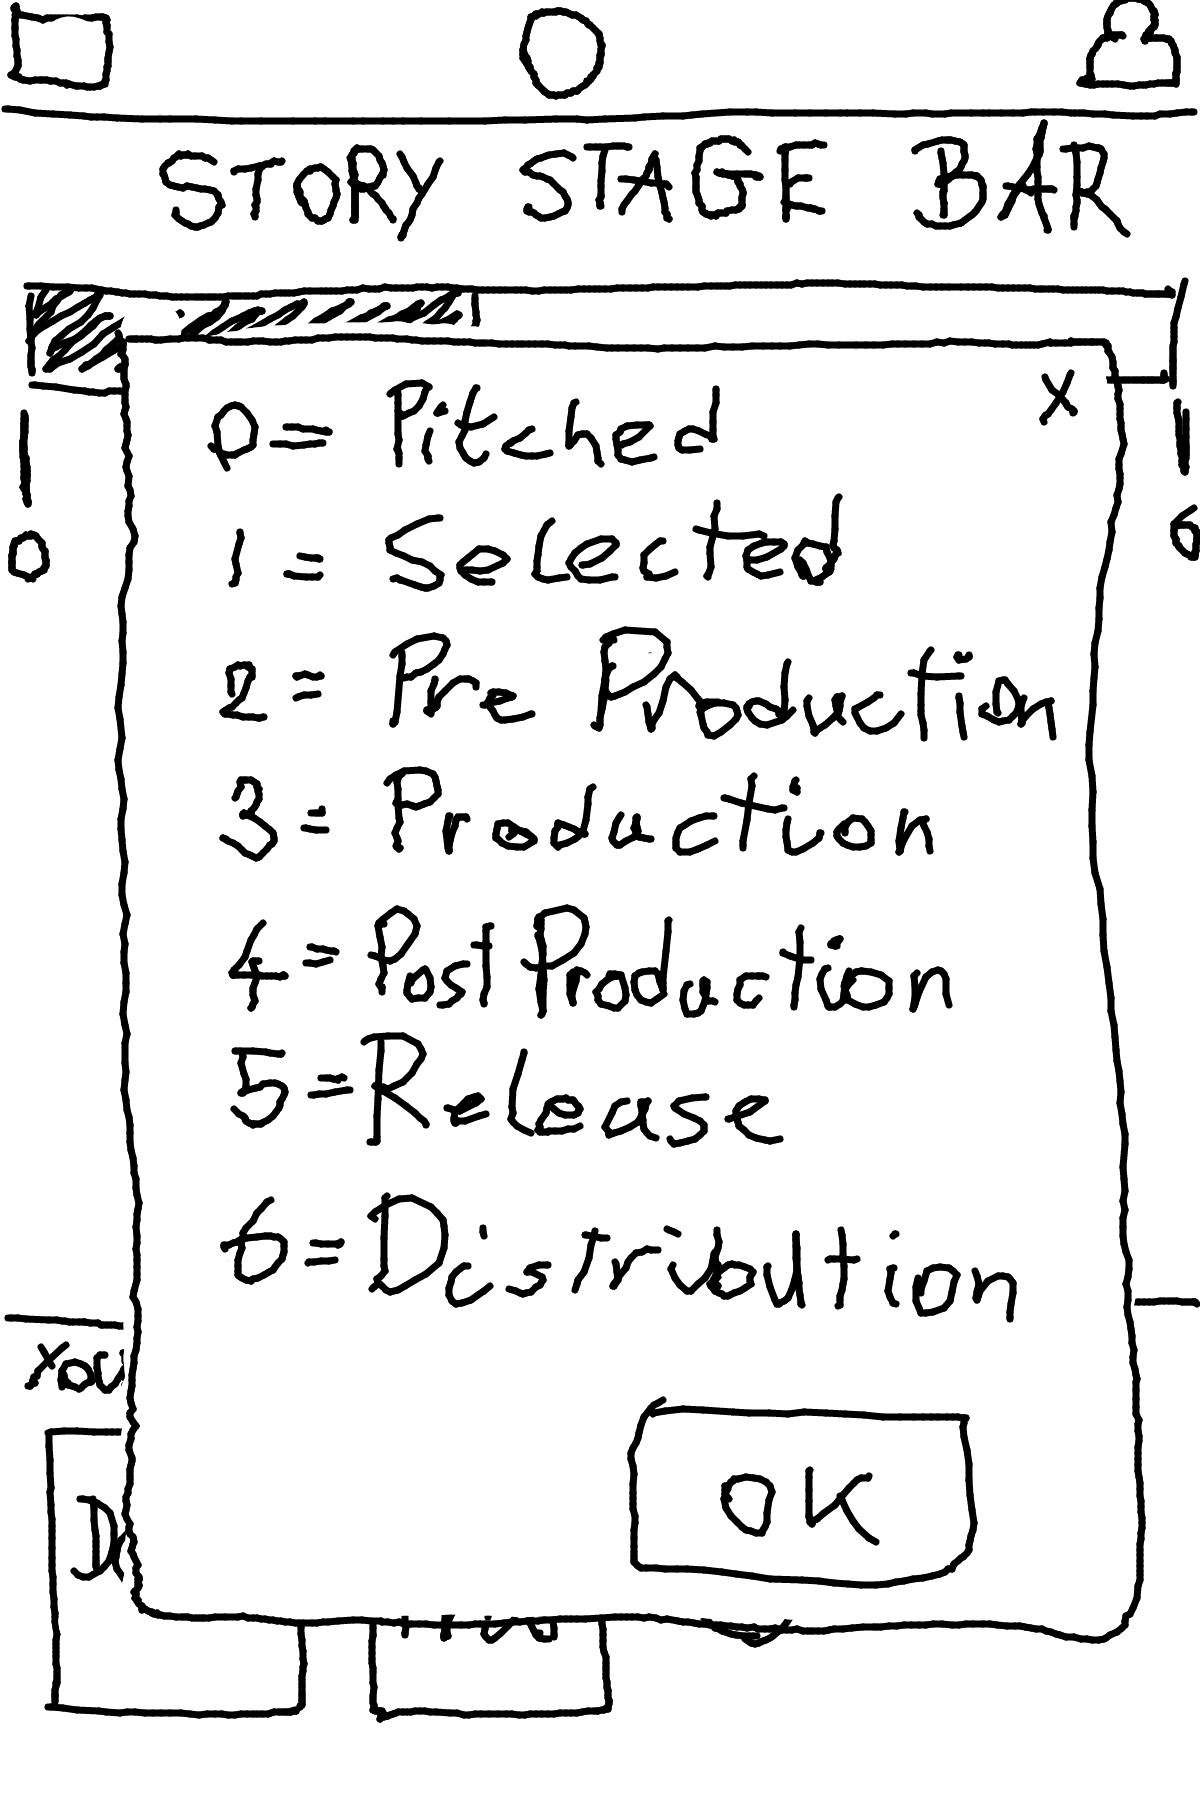 STORY STAGE BAR
X
0 = Pitched
1 = Selected
0 6
2 = Pre Production
3 = Production
4 = Post Production
5 = Release
6 = Distribution
You
OK